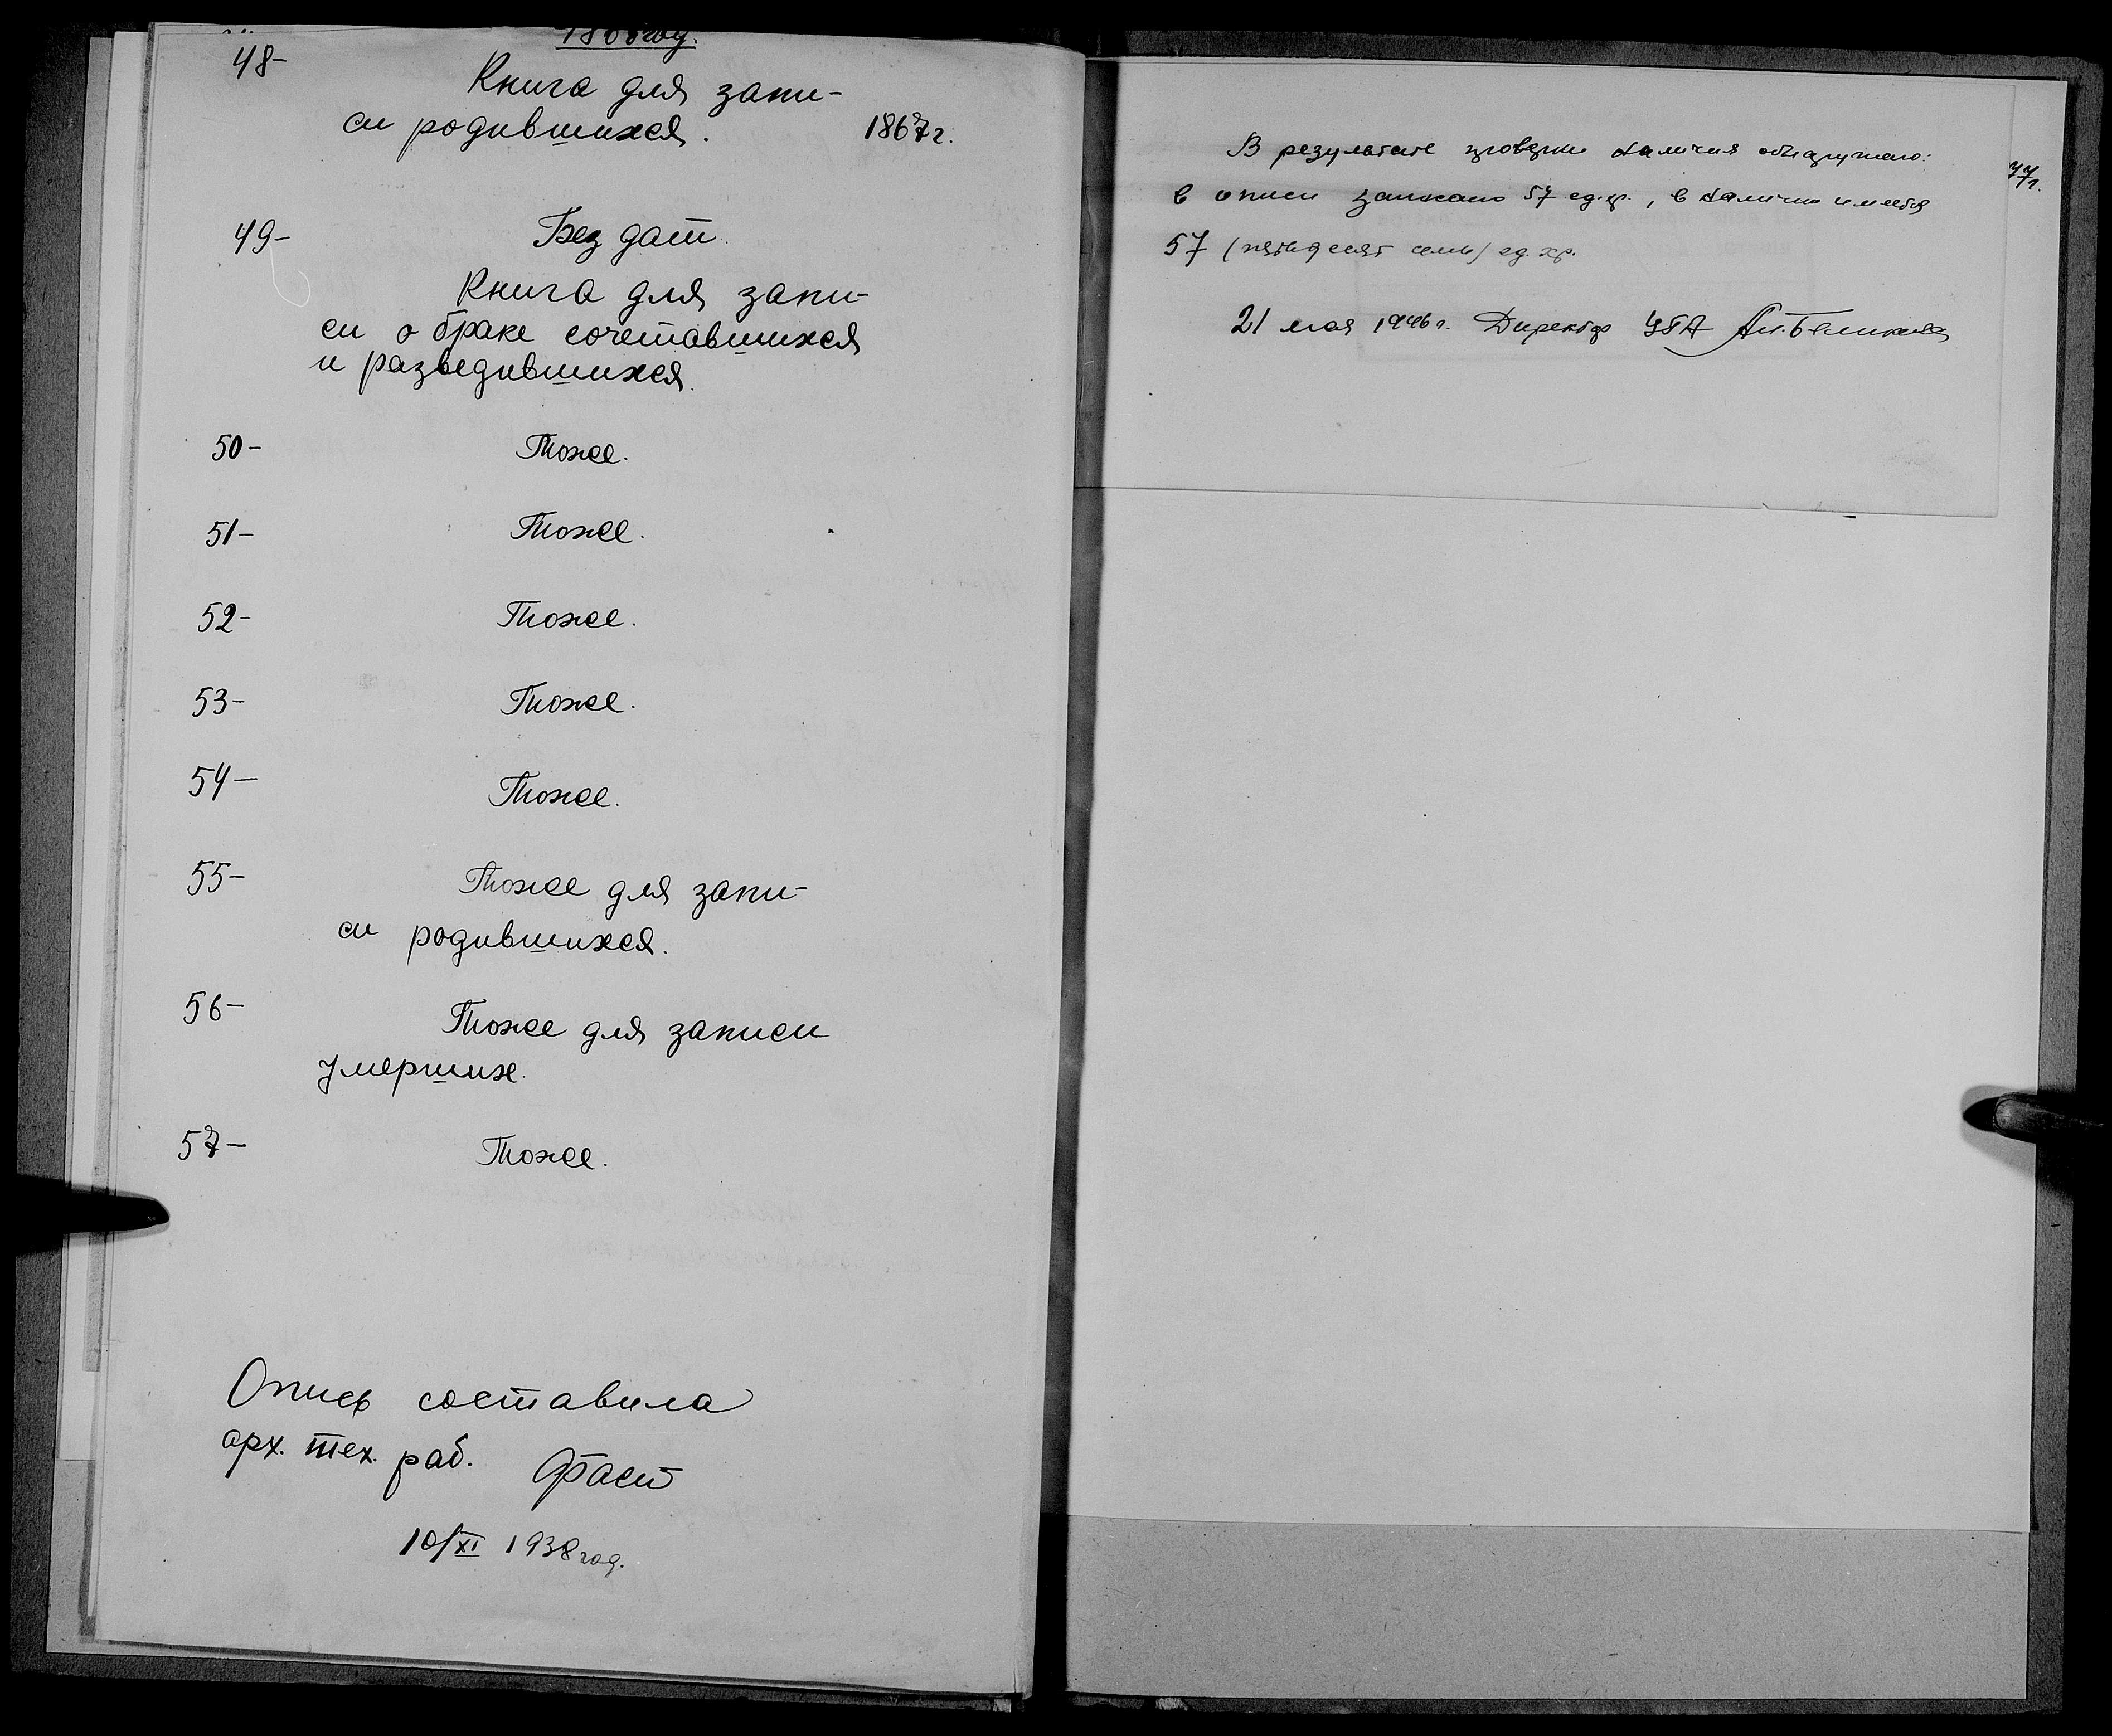 год.
48-
Книга для запи-
си родившихся. 1867г.
49- Без дат.
Книга для запи-
си о браке сочетавшихся
и разведившихся.
50- Тоже.
51- Тоже.
52- Тоже.
53- Тоже.
54- Тоже.
55- Тоже для запи-
си родившихся.
56- Тоже для записи
умерших.
57- Тоже.
Опись составила
арх. тех. раб. Фаст
10/XI 1938 год.
В результате проверки наличия обнаружено:
в описи записано 57 ед.хр., в наличии имеется
57 (пятьдесят семь) ед. хр.
21 мая 1946 г. Директор